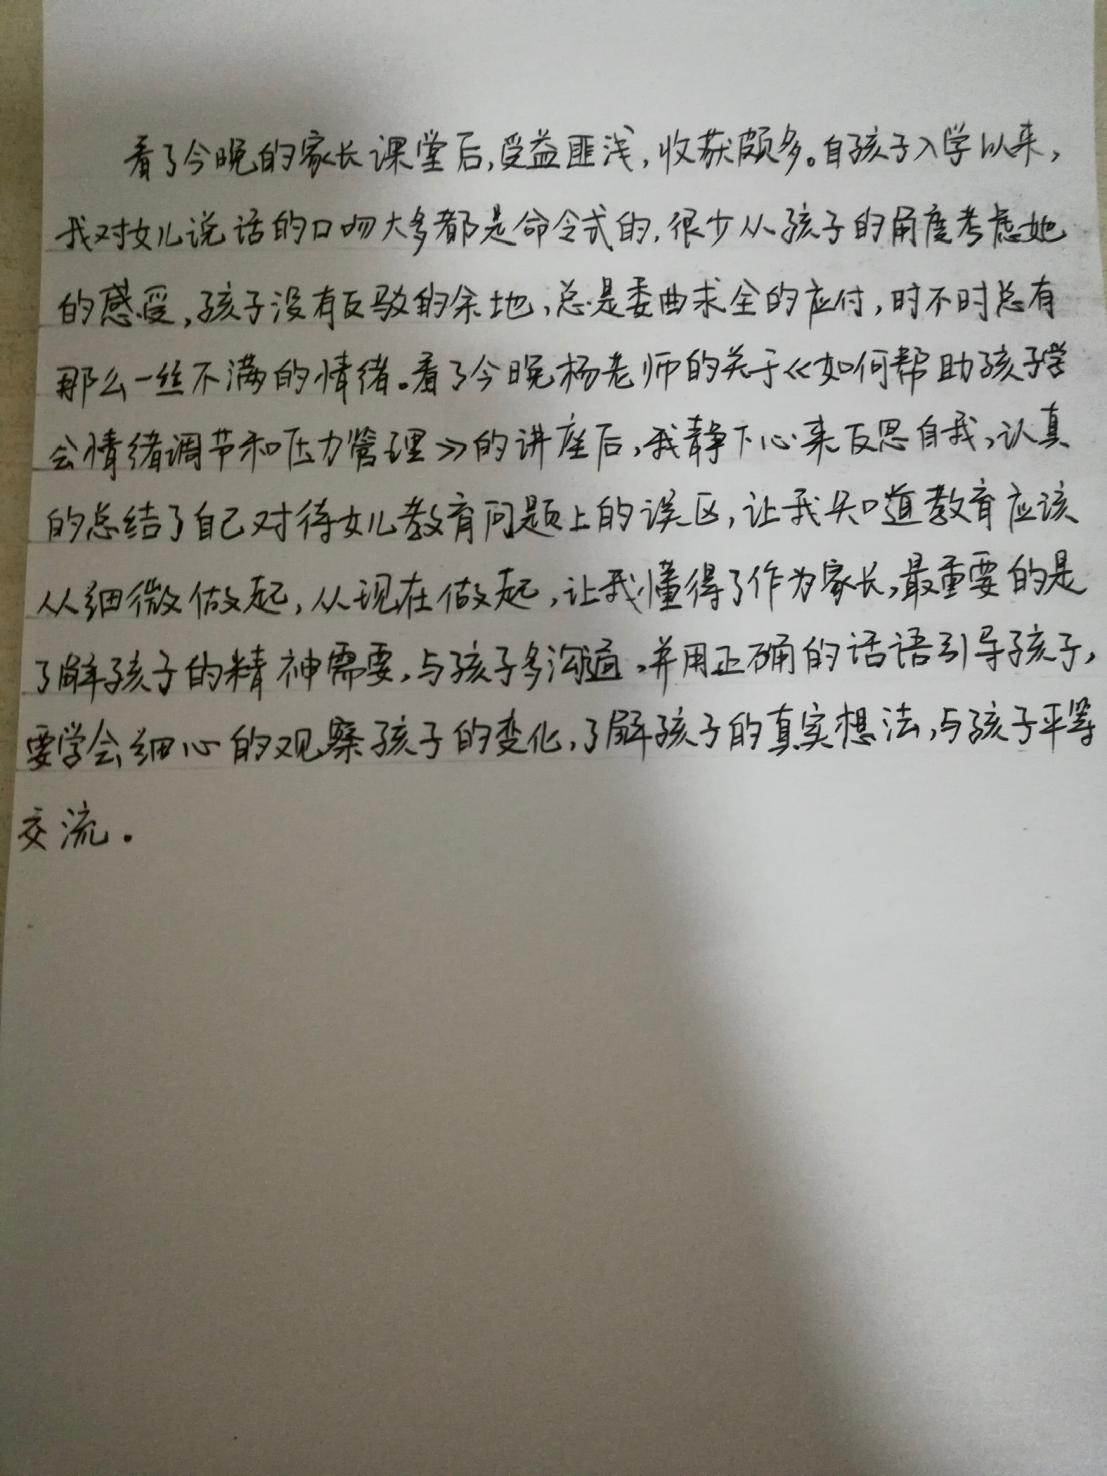 看了今晚的家长课堂后,受益匪浅,收获颇多。自孩子入学以来,
我对女儿说话的口吻大多都是命令式的,很少从孩子的角度考虑她
的感受,孩子没有反驳的余地,总是委曲求全的应付,时不时总有
那么一丝不满的情绪。看了今晚杨老师的关于《如何帮助孩子学
会情绪调节和压力管理》的讲座后,我静下心来反思自我,认真
的总结了自己对待女儿教育问题上的误区,让我知道教育应该
从细微做起,从现在做起,让我懂得了作为家长,最重要的是
了解孩子的精神需要,与孩子多沟通,并用正确的话语引导孩子,
要学会细心的观察孩子的变化,了解孩子的真实想法,与孩子平等
交流。